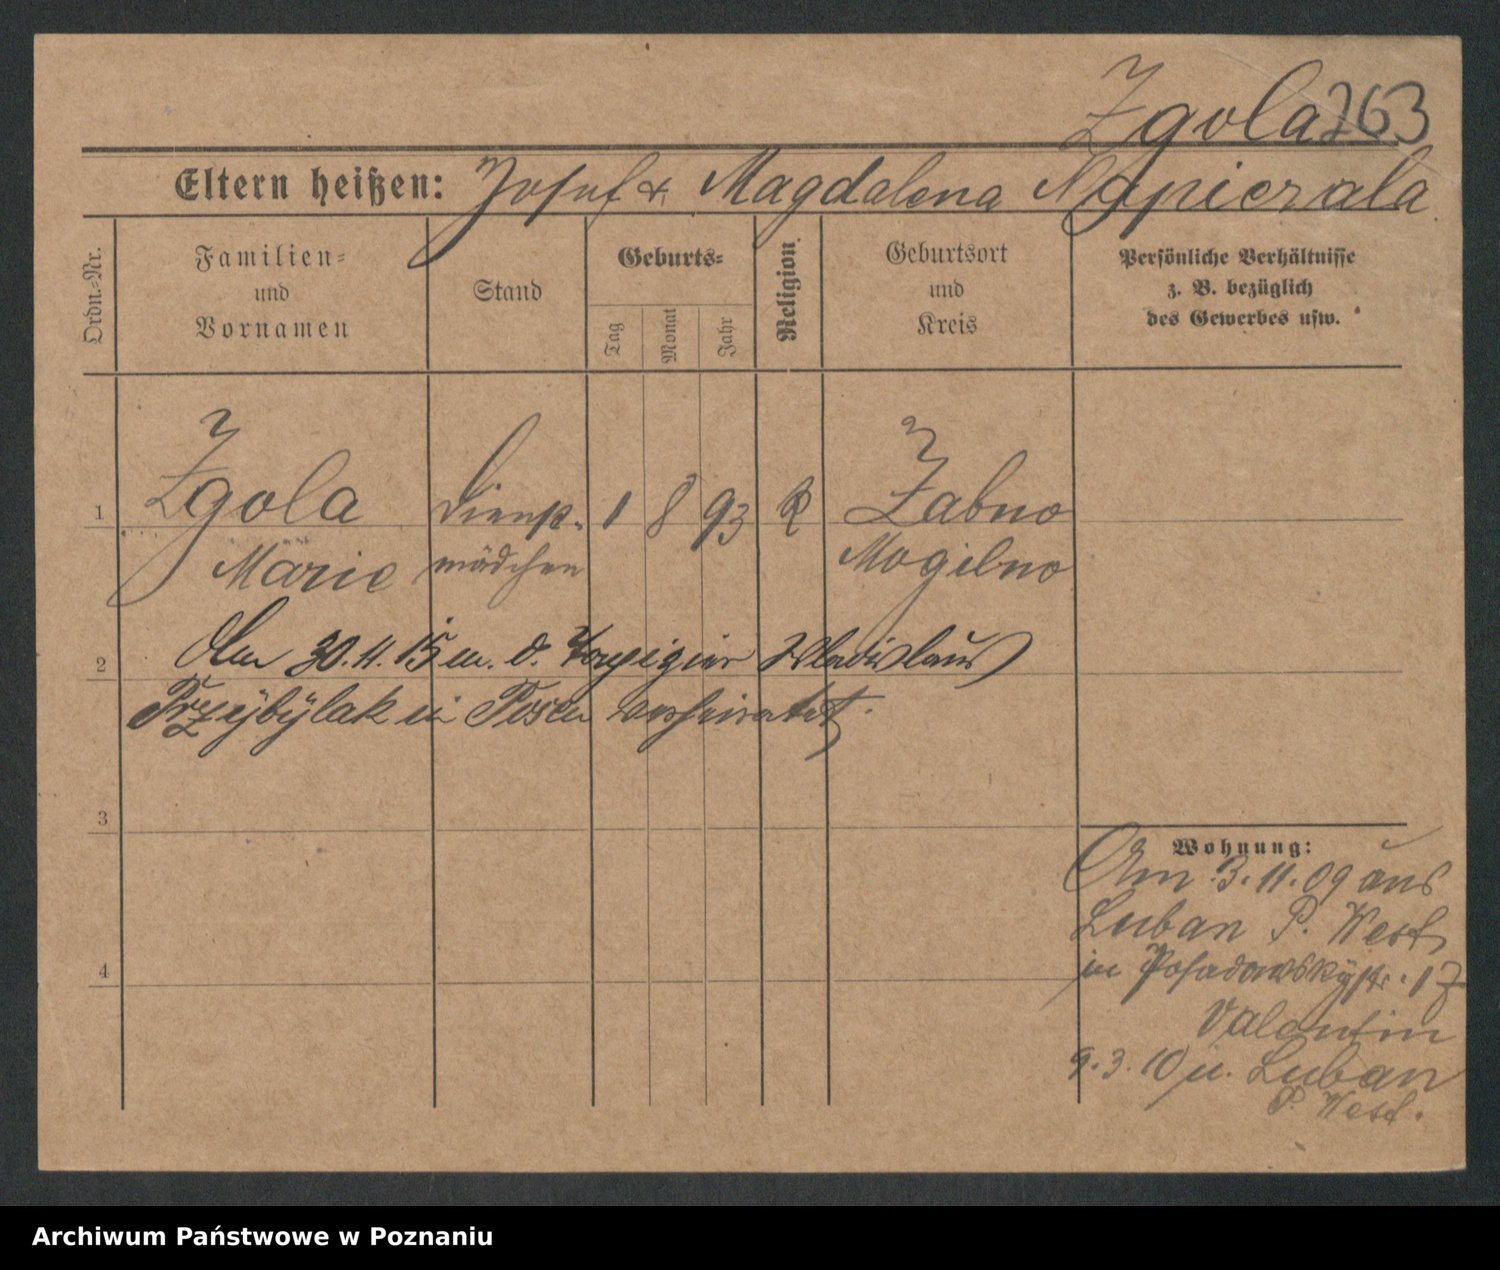 Zgola 763
Eltern heißen: Josef & Magdalena Napierala
Ordn.-Nr.
Familien-
und
Vornamen
Stand
Geburts-
Tag
Monat
Jahr
Religion
Geburtsort
und
Kreis
Persönliche Verhältnisse
z. B. bezüglich
des Gewerbes usw.
1 Zgola Dienst- 1 8 93 R Zabno
Marie mädchen Mogilno
2 Am 30.11.15 m. d. Wladislaus
Przybylak in Posen verheiratet.
3
4
Wohnung:
Am 3.11.09 aus
Luban P. West
in Posadowskystr. 17
Valentin
9.3.10 n. Luban
P. West.
Archiwum Państwowe w Poznaniu